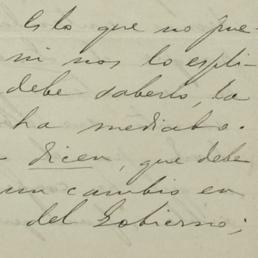 Es lo que no pue-
ni nos lo espli-
debe saberlo, la
ha mediado.
- dicen, que debe
un cambio en
del Gobierno;